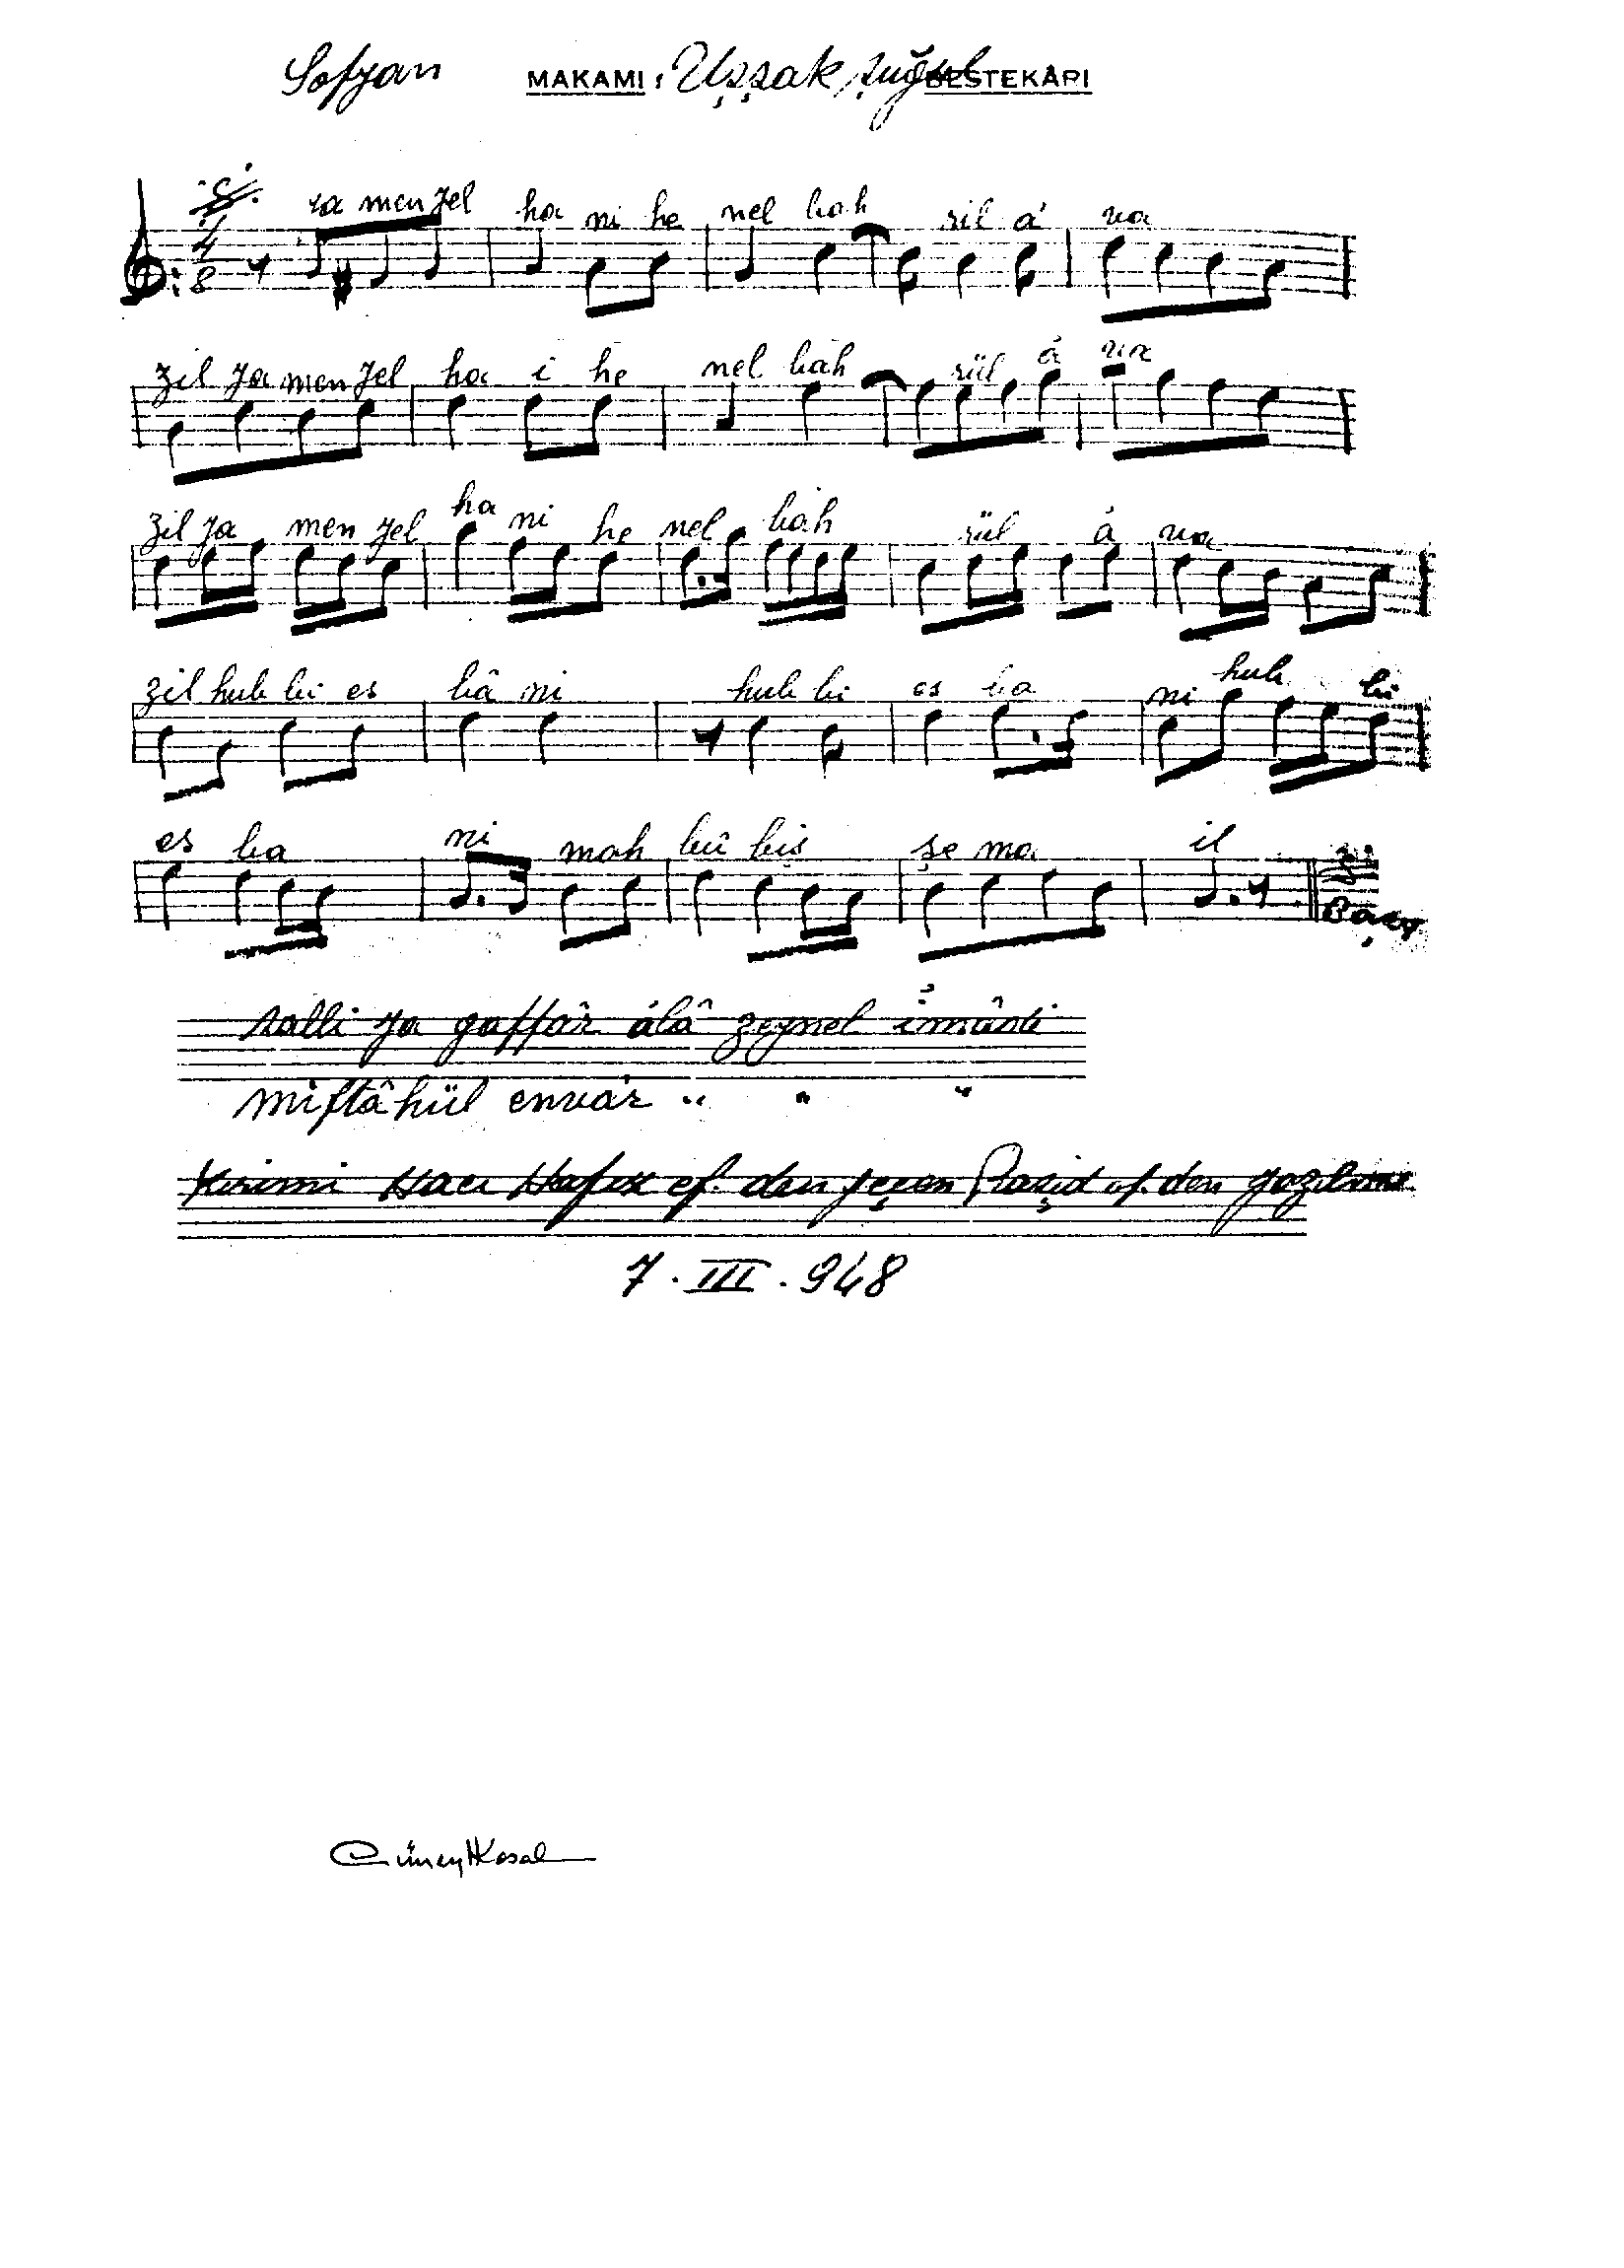 Sofyan MAKAMI : Uşşak şuğul BESTEKÂRI
4
8
ya men yel ha ni he nel bah ril â va
zil ya men yel ha i he nel bah rül â va
zil ya men yel ha ni he nel bah rül â va
zil hub bi es bâ ni hub bi es ba ni hub bi
es ba ni mah bû biş şe ma il
salli ya gaffâr âlâ zeynel
miftâhül envâr " " "
Kırımi Hacı Hafız ef. den geçen Raşid ef. den yazılmış
7 . III . 948
Cüneyd Kosal